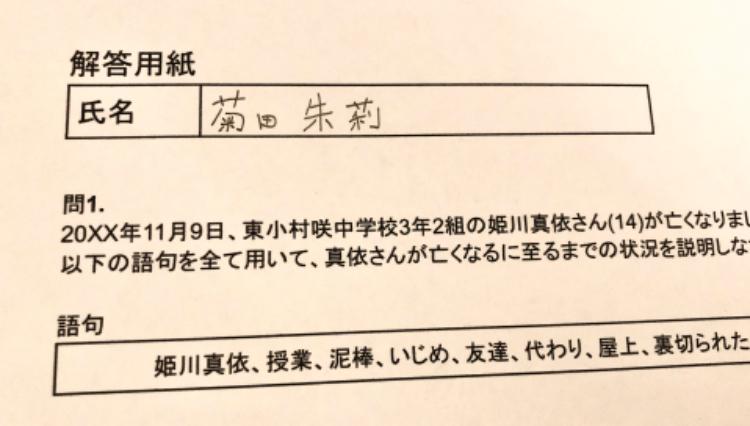 解答用紙
氏名 菊田 朱莉
問1.
20XX年11月9日、東小村咲中学校3年2組の姫川真依さん(14)が亡くなりまし
以下の語句を全て用いて、真依さんが亡くなるに至るまでの状況を説明しな
語句
姫川真依、授業、泥棒、いじめ、友達、代わり、屋上、裏切られた